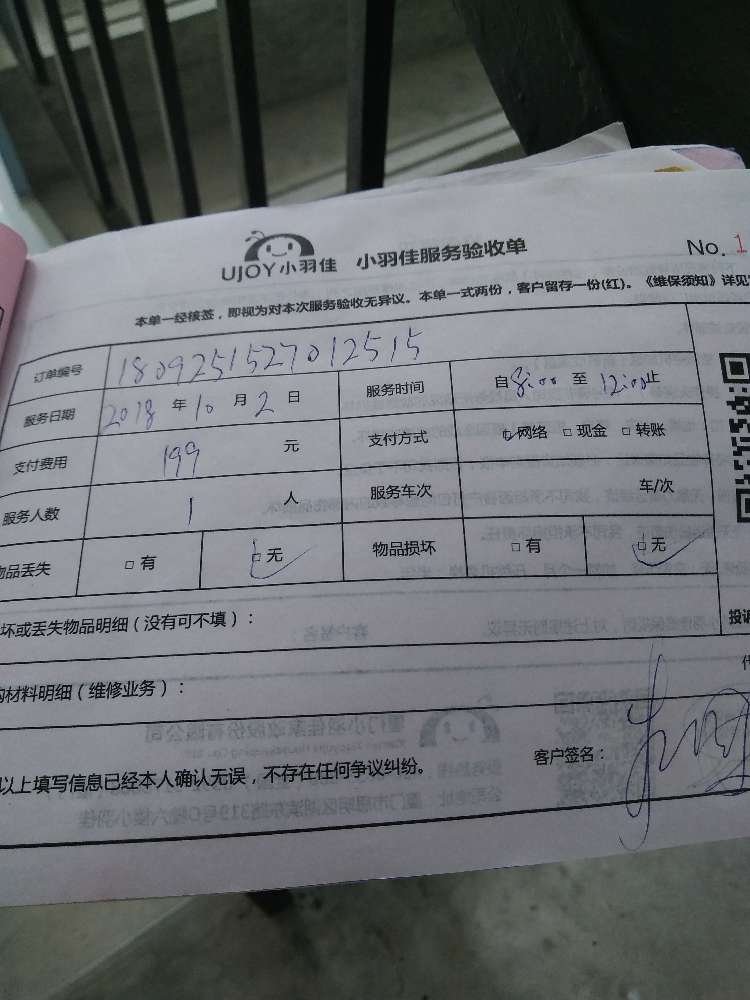 UJOY小羽佳 小羽佳服务验收单
No. 1
本单一经核签，即视为对本次服务验收无异议。本单一式两份，客户留存一份(红)。《维保须知》详见
订单编号 180925152701 2515
服务日期 2018 年 10 月 2 日 服务时间 自 8:00 至 12:00 止
支付费用 199 元 支付方式 □网络 □现金 □转账
服务人数 1 人 服务车次 车/次
物品丢失 □有 □无 物品损坏 □有 □无
坏或丢失物品明细（没有可不填）：
投诉
材料明细（维修业务）：
以上填写信息已经本人确认无误，不存在任何争议纠纷。
客户签名：